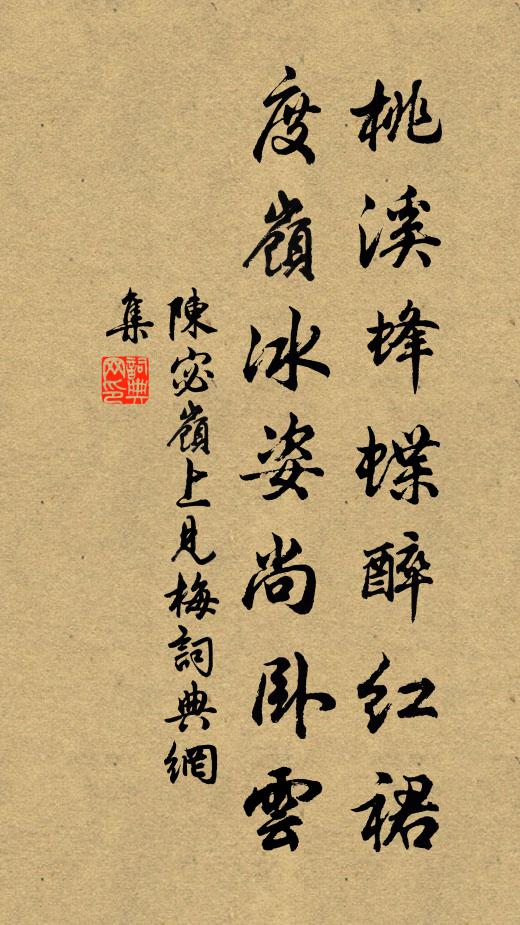 桃溪蜂蝶醉紅裙
度嶺冰姿尚卧雲
陳宓嶺上見梅詞典網
集
詞典网印